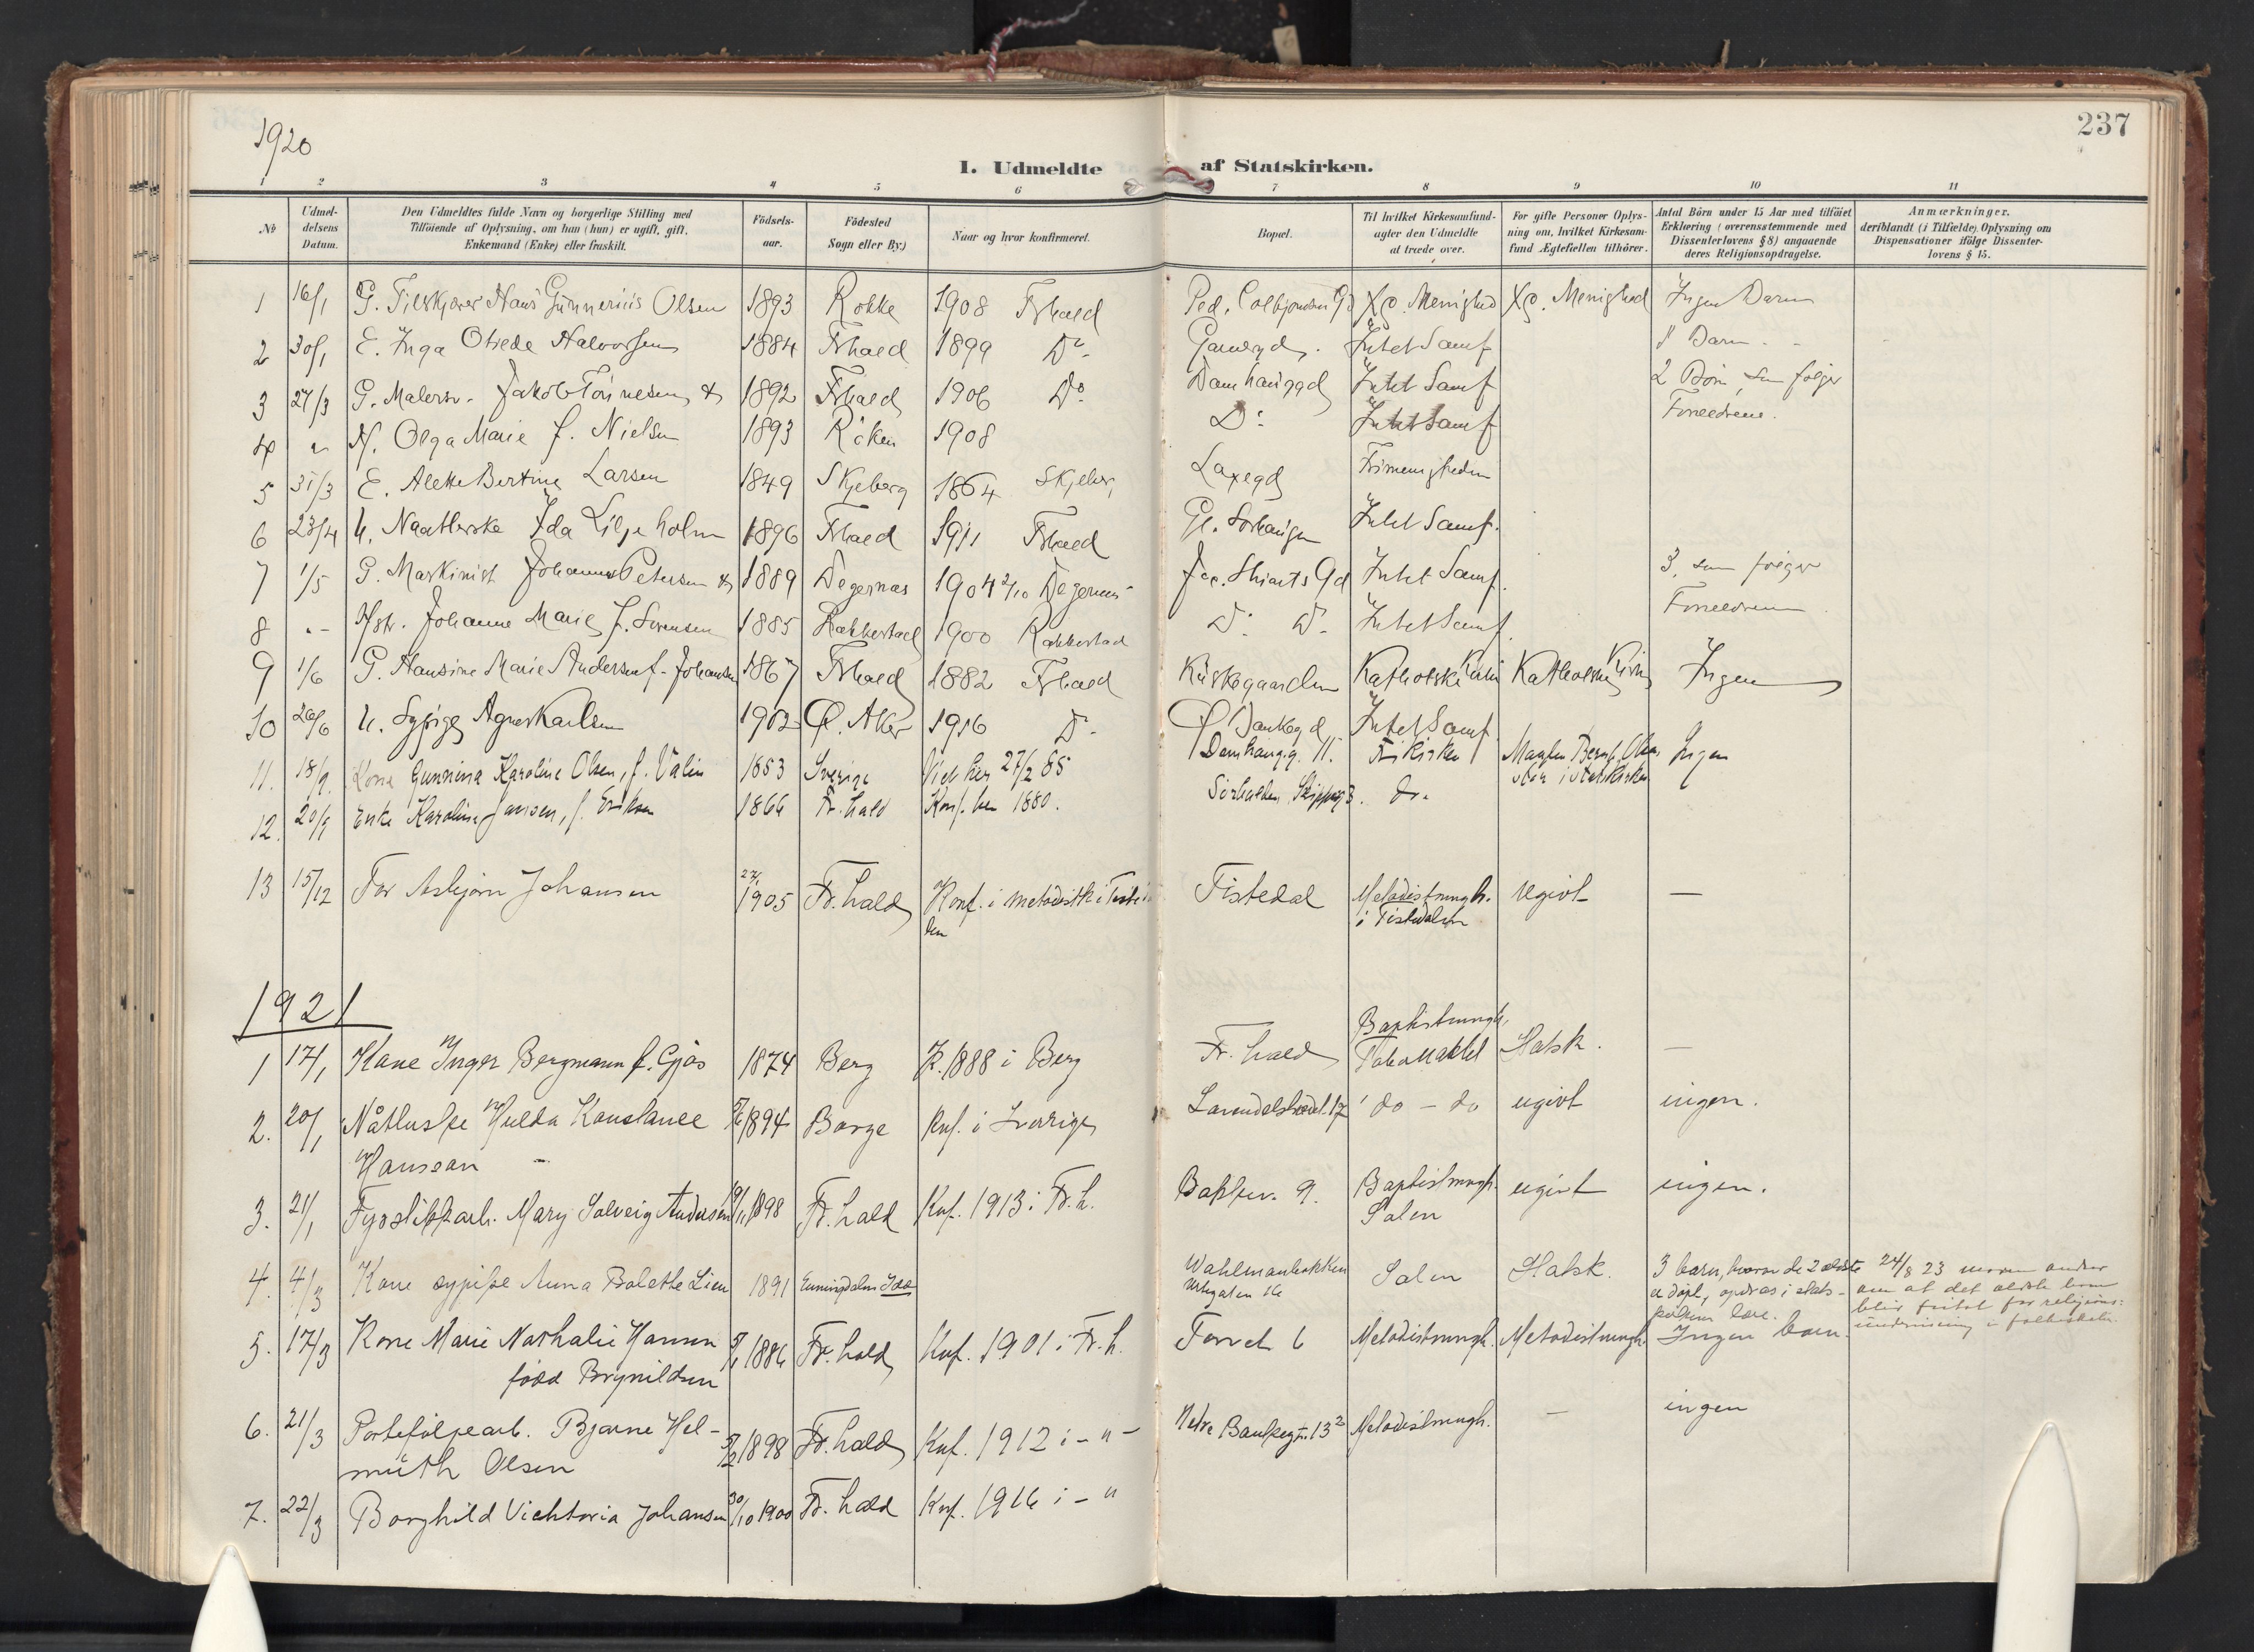 1920
237
I. Udmeldte af Statskirken.
1 2 3 4 5 6 7 8 9 10 11
No
Udmel-
delsens
Datum.
Den Udmeldtes fulde Navn og borgerlige Stilling med
Tilföiende af Oplysning, om han (hun) er ugift, gift,
Enkemand (Enke) eller fraskilt.
Födsels-
aar.
Födested
Sogn eller By.)
Naar og hvor konfirmeret.
Bopæl.
Til hvilket Kirkesamfund
agter den Udmeldte
at træde over.
For gifte Personer Oplys-
ning om, hvilket Kirkesam-
fund Ægtefællen tilhörer.
Antal Börn under 15 Aar med tilföiet
Erklæring (overensstemmende med
Dissenterlovens § 8) angaaende
deres Religionsopdragelse.
Anmærkninger,
deriblandt (i Tilfælde) Oplysning om
Dispensationer ifölge Dissenter-
lovens § 15.
1 16/1 G. Hans Gunnerius Olsen 1893 Rokke 1908 Frhald Ped. Colbjørnsens Gd Xp. Menighed Xp. Menighed Ingen Barn
2 30/1 E. Inga Halvorsen 1884 Frhald 1899 Do Intet Samf 1 Barn
3 27/3 G. Malersv. Jakob Tønnesen & 1892 Frhald 1906 Do Damhauggd Intet Samf 2 Börn, som følger
4 " H. Olga Marie f. Nielsen 1893 Röken 1908 Do Intet Samf Forældrene.
5 31/3 E. Alette Bertine Larsen 1849 Skjeberg 1864 Skjeberg Laxegd Frimenigheden
6 23/4 U. Ida Liljeholm 1896 Frhald 1911 Frhald Gl. Intet Samf.
7 1/5 G. Maskinist Johannes Petersen & 1889 Degernes 1904 2/10 Degernes Intet Samf. 3, som følger
8 " Hstr. Johanne Marie f. Sørensen 1885 Rakkestad 1900 Rakkestad Do Do Intet Samf. Forældrene
9 1/6 G. Hansine Marie Andersen f. Johansen 1867 Frhald 1882 Frhald Kirkegaarden Katholske Kirke Katholske Kirke Ingen
10 26/6 U. Sypige Agnes Karlsen 1902 Ø. Aker 1916 Do Ø Bankegd Intet Samf
11. 18/9. Kone Gunnina Karoline Olsen, f. Valin 1853 Sverige Viet her 27/2 85 Damhaug.g. 11. Frikirken Manden Bernh. Olsen Ingen
12. 20/9 Enke Karoline Jansen, f. Eriksen 1866 Fr.hald Konf. her 1880. Sørhalden, 3. do.
13 15/12 Tor Asbjørn Johansen 1905 Fr.hald Konf. i metodistk. i Tiste- Tistedal Metodistmngh. Ugivt —
den i Tistedalen
1921
1 17/1 Kone Inger Bergmann f. Gjøs 1874 Berg K. 1888 i Berg Fr.hald Baptistmngh. Statsk. —
2. 20/1 Hulda Konstance 1894 Borge Knf. i Sverige do - do ugivt ingen.
Hanssen
3. 21/1 Fyrstikkarb. Mary Solveig Andersen 1898 Fr.hald Knf. 1913 i Fr.h. Bakkev. 9. Baptistmngh. ugivt ingen.
Salen
4. 4/3 Kone sypike Anna Bolette Lien 1891 Enningdalen Idd Wahlmanbakken Salen Statsk. 3 barn, hvorav de 2 ældste
er døpt, opdras i stats- 24/8 23
kirkens lære. om at det ældste barn
blir fritat for religions-
undervisning i folkeskolen.
5. 17/3 Kone Marie Nathalie Hansen 1886 Fr.hald Knf. 1901 i Fr.h. Torvet 6 Metodistmngh. Metodistmngh. Ingen barn.
född Brynildsen
6. 21/3 Portefølgearb. Bjarne Hel- 1898 Fr.hald Knf. 1912 i - " - Nedre Bankegt. 13² Metodistmngh. — ingen
muth Olsen
7. 22/3 Borghild Vichtoria Johansen 30/10 1900 Fr.hald Knf. 1916 i - "